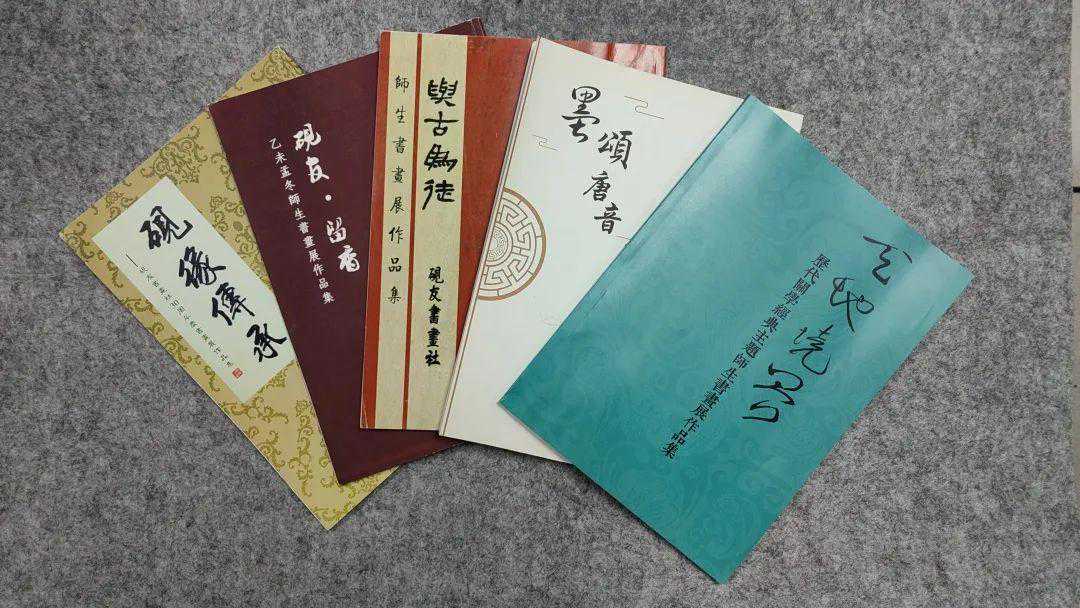 硯緣傳承
硯友·留香
乙未孟冬師生書畫展作品集
與古為徒
師生書畫展作品集
硯友書畫社
墨頌唐音
天地境界
歷代關學經典主題師生書畫展作品集